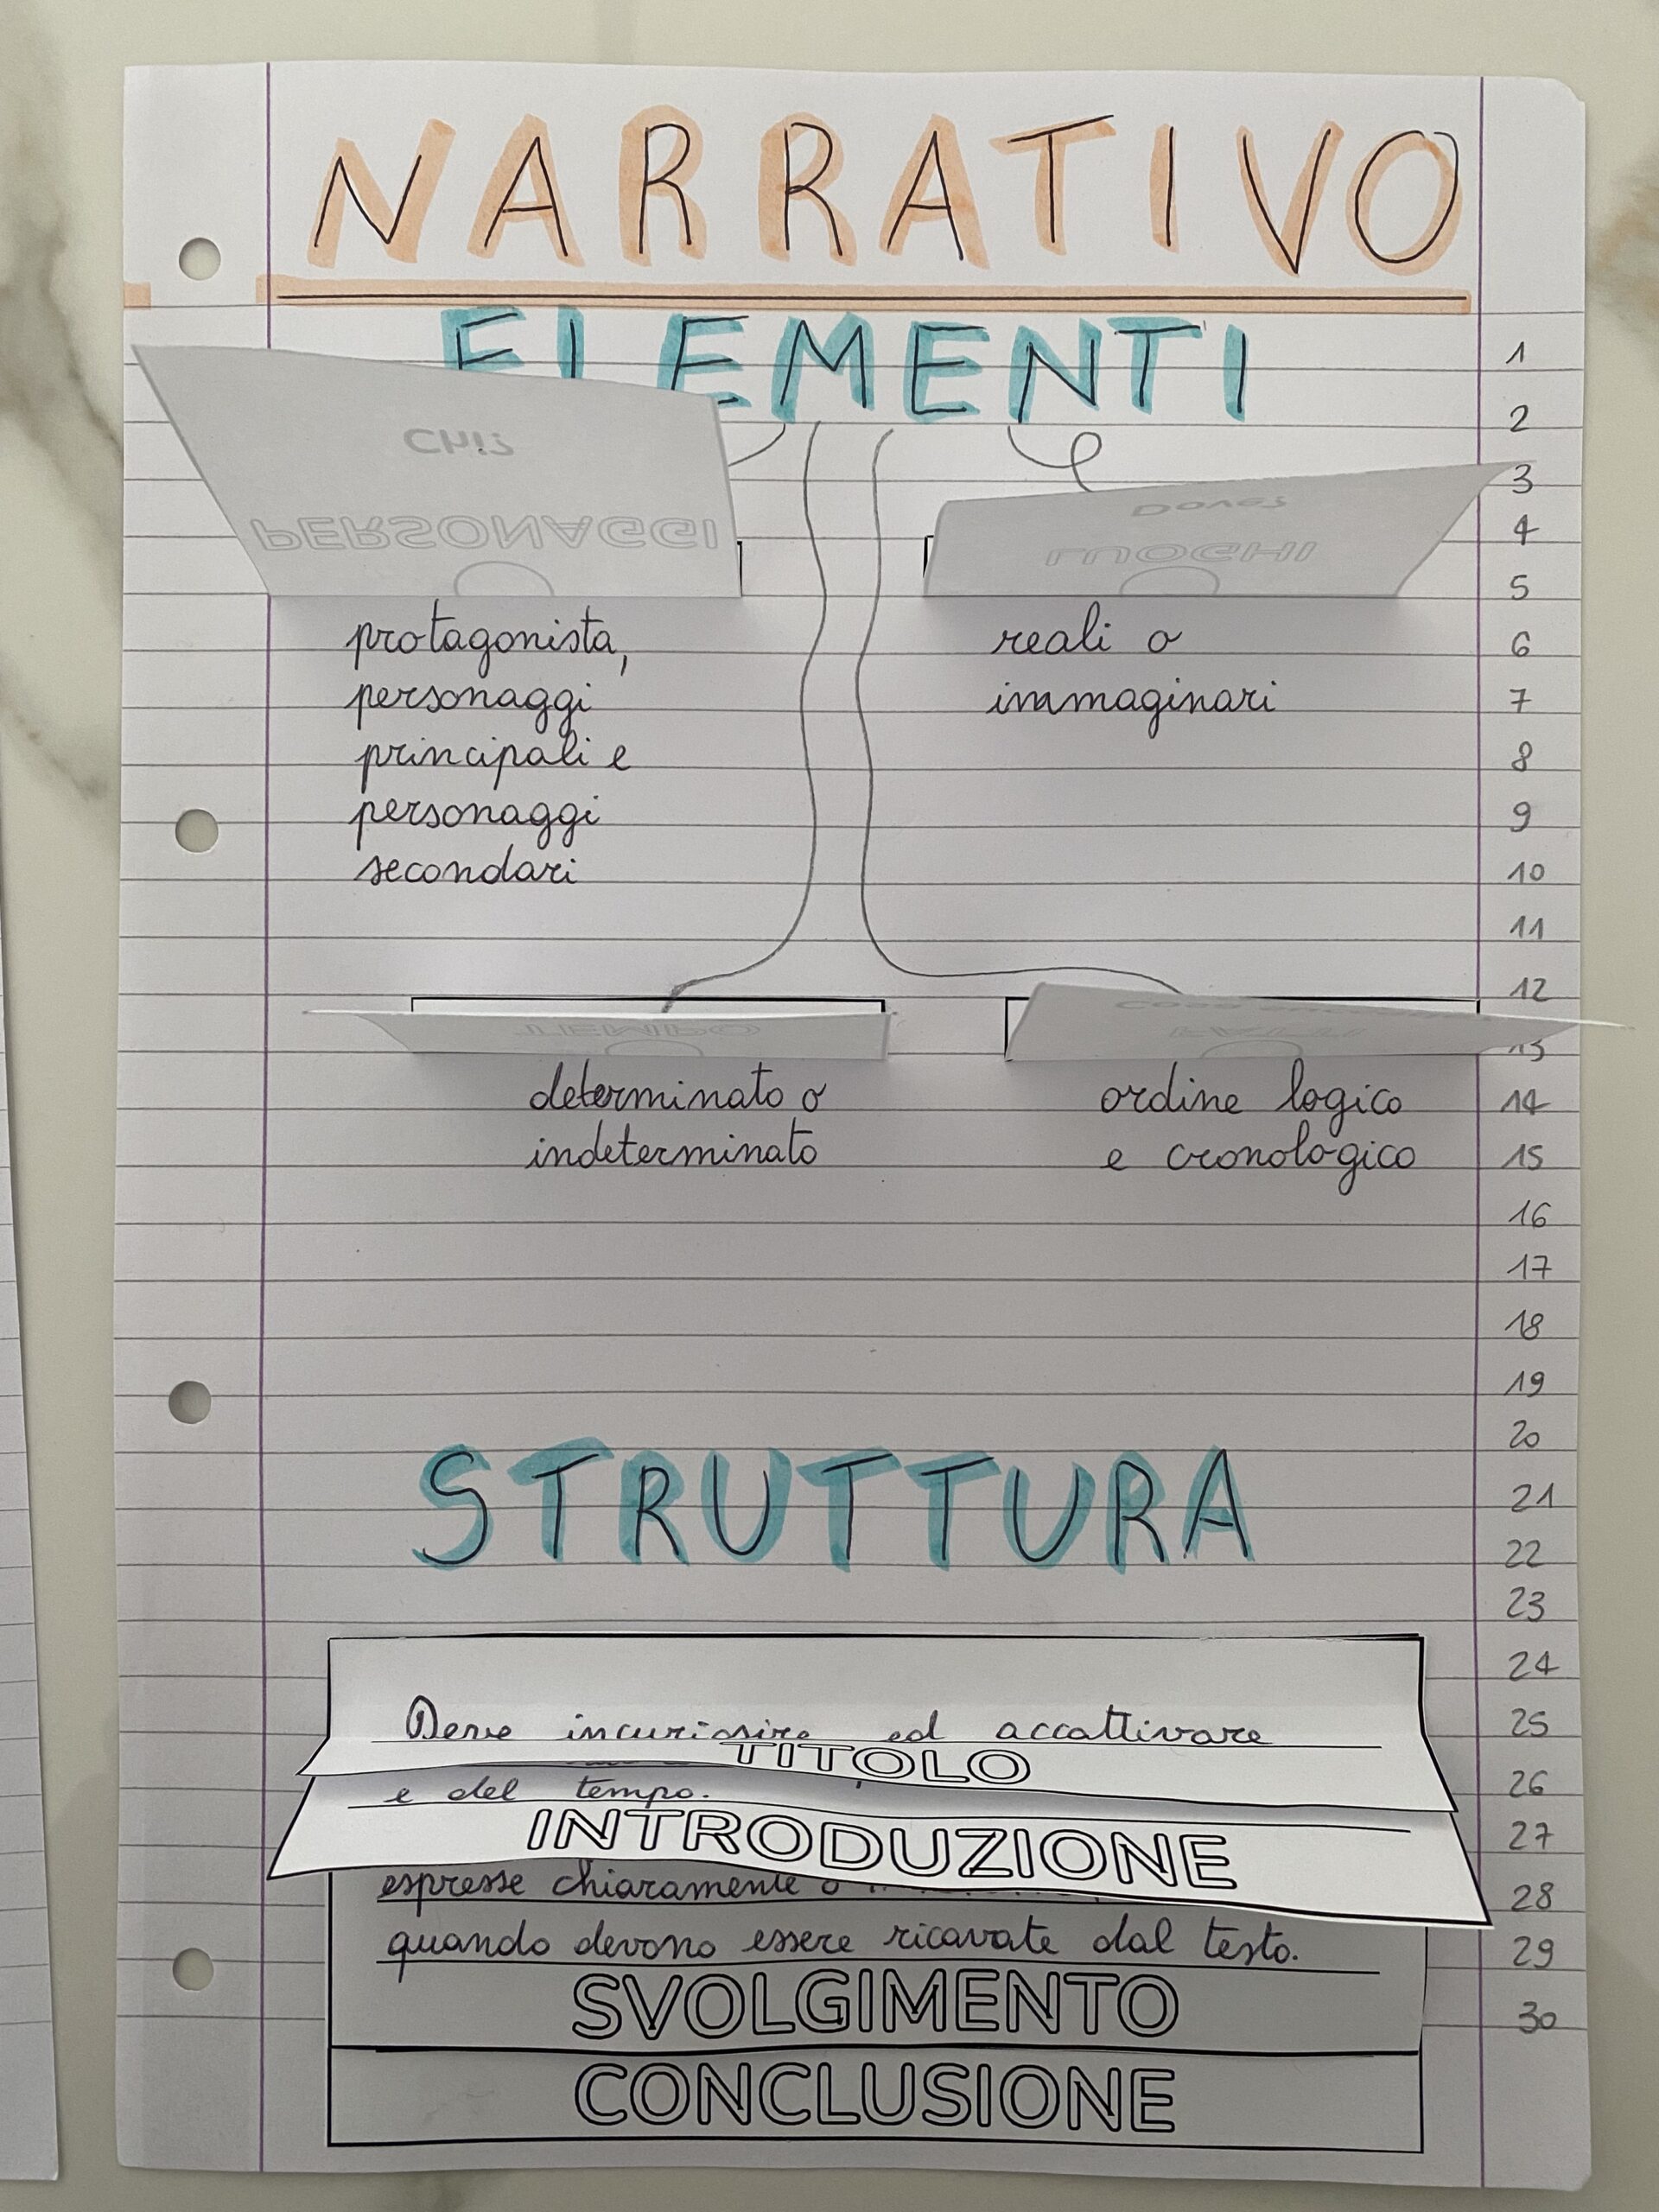 NARRATIVO
ELEMENTI
Chi?
PERSONAGGI
Dove?
LUOGHI
protagonista,
personaggi
principali e
personaggi
secondari
reali o
immaginari
TEMPO
FATTI
determinato o
indeterminato
ordine logico
e cronologico
STRUTTURA
Deve incuriosire ed accattivare
TITOLO
e del tempo.
INTRODUZIONE
espresse chiaramente o
quando devono essere ricavate dal testo.
SVOLGIMENTO
CONCLUSIONE
1
2
3
4
5
6
7
8
9
10
11
12
13
14
15
16
17
18
19
20
21
22
23
24
25
26
27
28
29
30